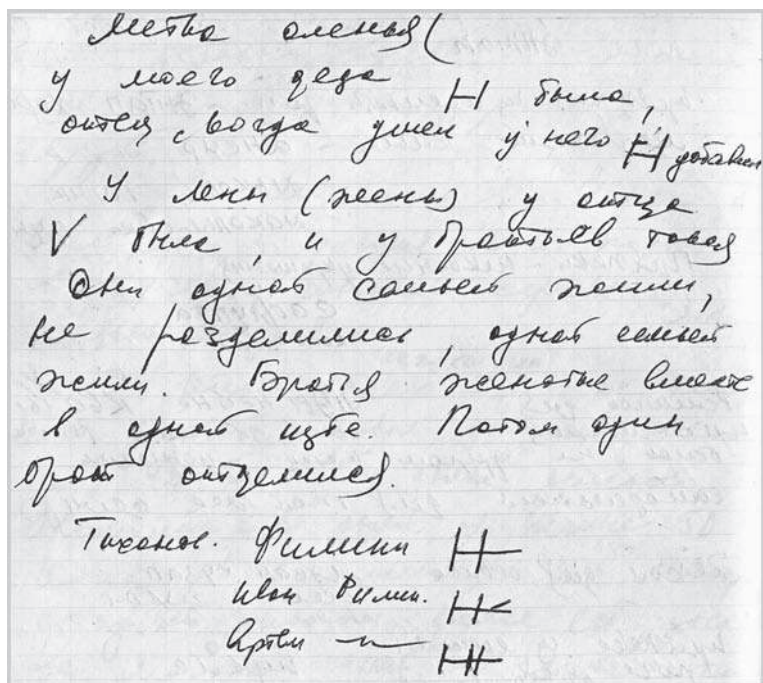 Метка оленья (
у моего деда H была,
отец, когда ушел у него добавил
У Лены (жены) у отца
V была, и у братьяв такая
Они одной семьей жили,
не разделились, одной семьей
жили. Братья женатые вместе
в одной избе. Потом один
брат отделился.
Тихонов. Филипп
Иван Филип.
Артем